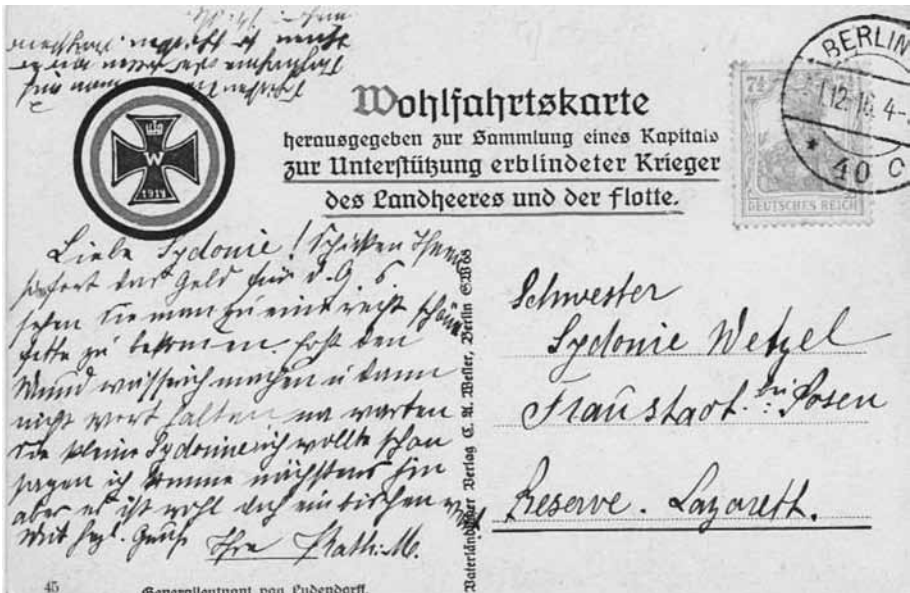 Wohlfahrtskarte
herausgegeben zur Sammlung eines Kapitals
zur Unterstützung erblindeter Krieger
des Landheeres und der Flotte.
W
1914
7½ 7½
DEUTSCHES REICH
BERLIN
1.12.16. 4-
* 40 C
Liebe Sydonie! Schicken Ihnen
sofort das Geld für d. G.
sehen Sie man zu eine recht schöne
fette zu bekommen. Erst den
Mund wässerich machen u dann
nicht wort halten na warten
Sie kleine Sydonie ich wollte schon
sagen ich komme nächstens hin
aber es ist wohl doch ein bischen
weit herzl. Gruß Ihre Kath. M.
Vaterländischer Verlag C. A. Weller, Berlin SW 68
Schwester
Sydonie Wetzel
Fraustadt. bei Posen
Reserve. Lazarett.
45
Generalleutnant von Ludendorff.